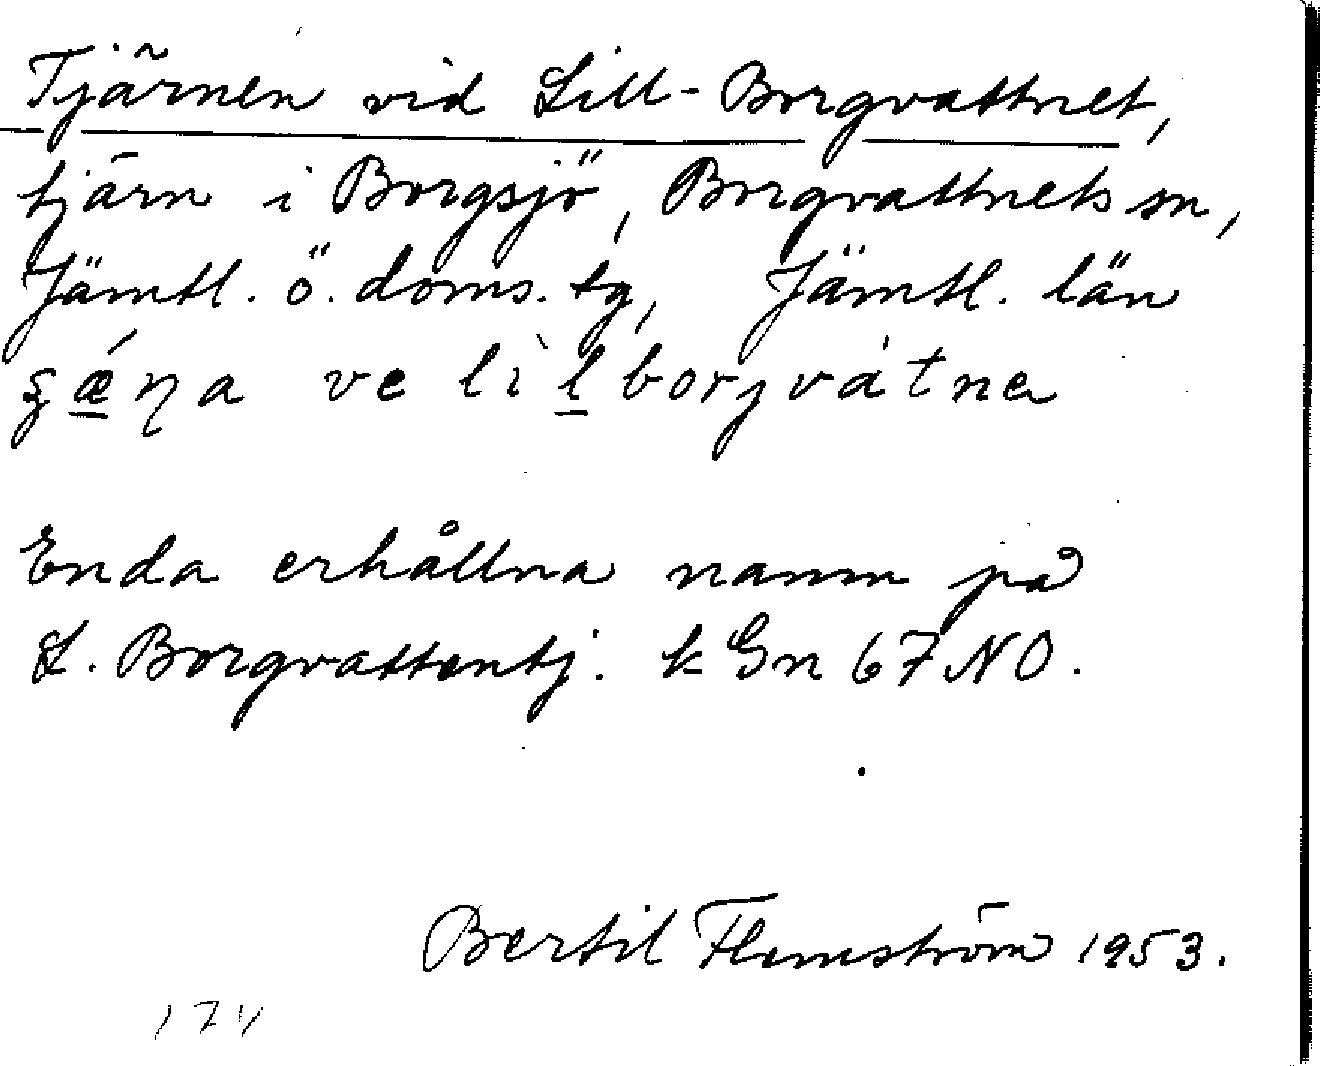 Tjärnen vid Lill-Borgvattnet,
tjärn i Borgsjö, Borgvattnets sn,
Jämtl. ö. doms. tg, Jämtl. län
ve borjvátne
Enda erhållna namn på
L. Borgvattentj. k Gn 67 NO.
Bertil Flemström 1953.